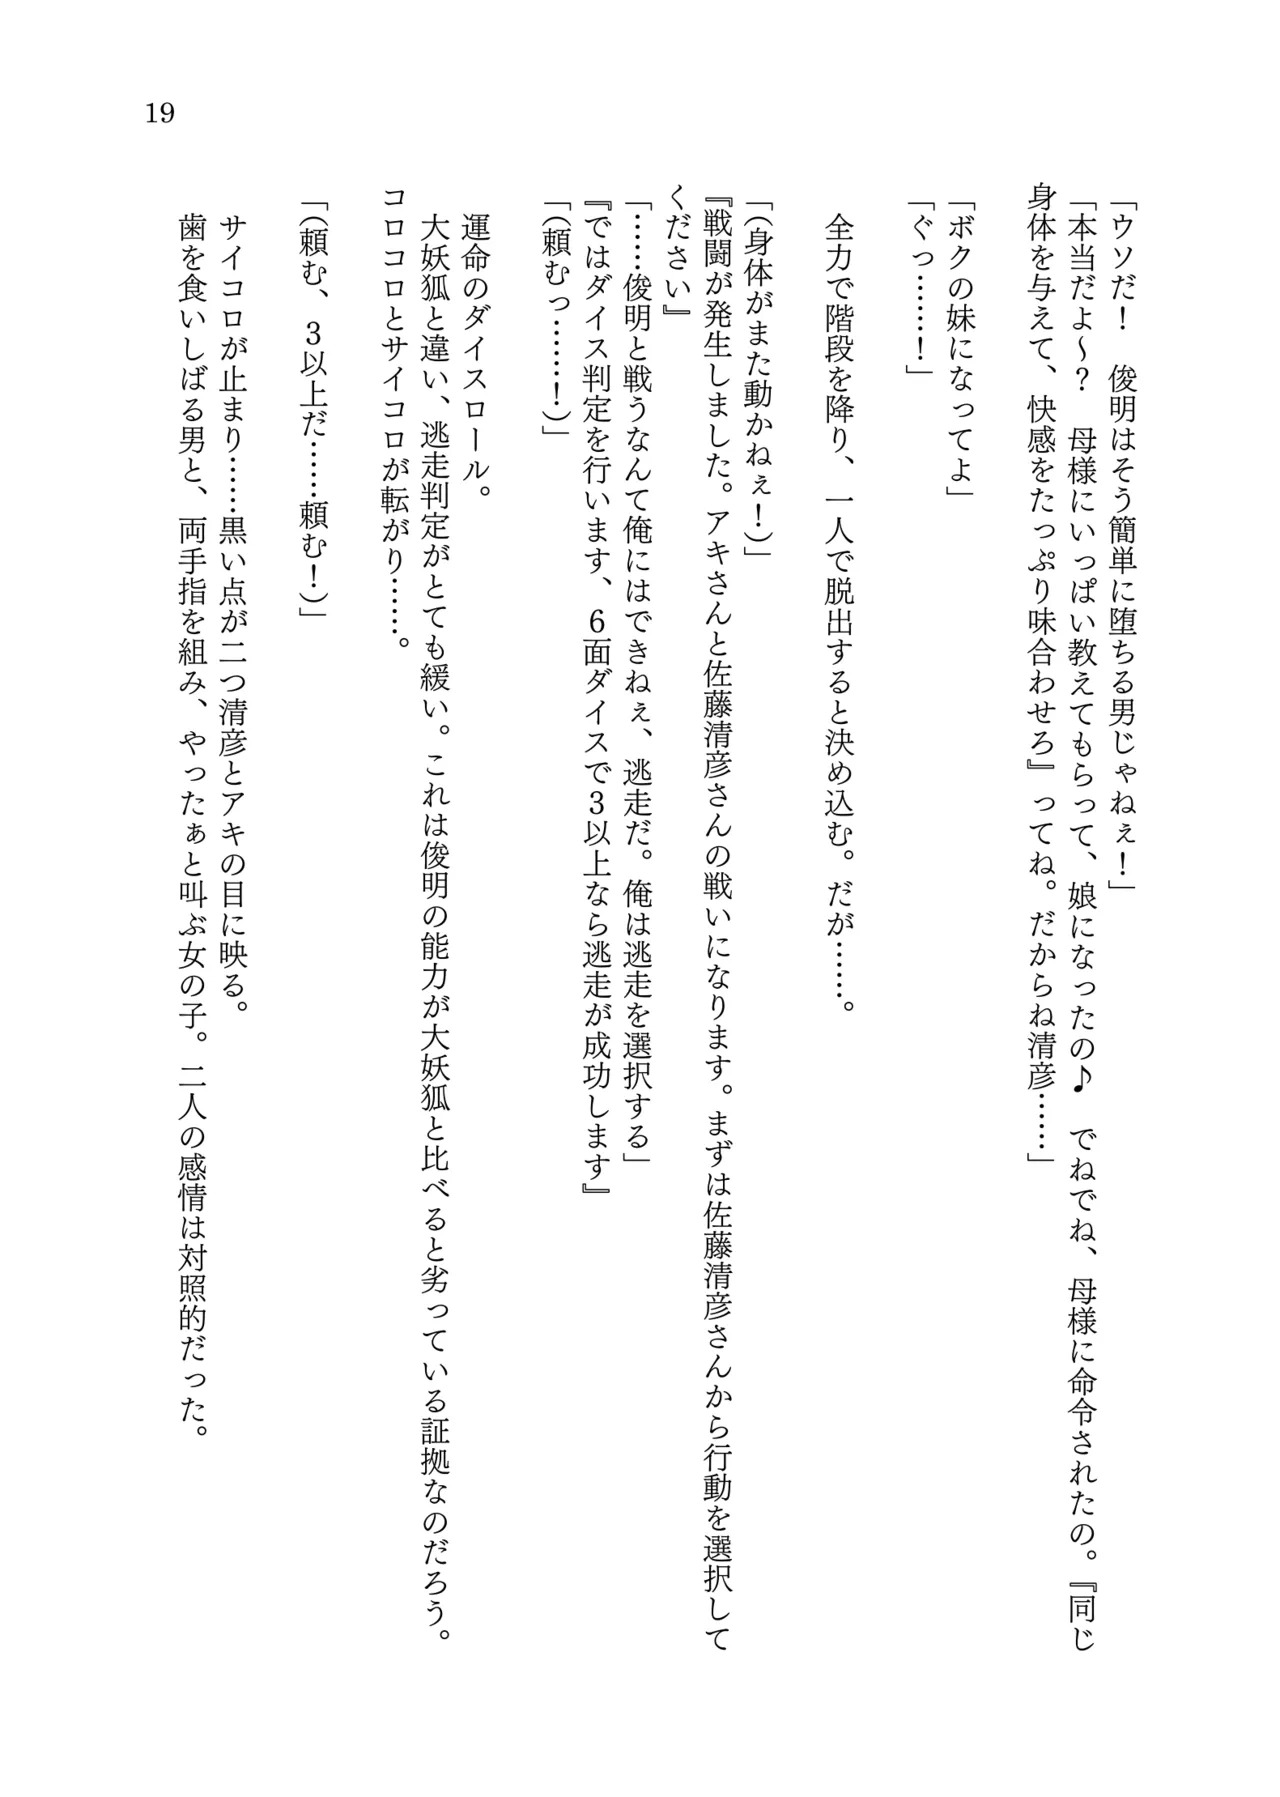 19
「ウソだ！　俊明はそう簡単に堕ちる男じゃねぇ！」
「本当だよ～？　母様にいっぱい教えてもらって、娘になったの♪　でねでね、母様に命令されたの。『同じ
身体を与えて、快感をたっぷり味合わせろ』ってね。だからね清彦……」
「ボクの妹になってよ」
「ぐっ……！」
全力で階段を降り、一人で脱出すると決め込む。だが……。
「（身体がまた動かねぇ！）」
『戦闘が発生しました。アキさんと佐藤清彦さんの戦いになります。まずは佐藤清彦さんから行動を選択して
ください』
「……俊明と戦うなんて俺にはできねぇ、逃走だ。俺は逃走を選択する」
『ではダイス判定を行います、6面ダイスで3以上なら逃走が成功します』
「（頼むっ……！）」
運命のダイスロール。
大妖狐と違い、逃走判定がとても緩い。これは俊明の能力が大妖狐と比べると劣っている証拠なのだろう。
コロコロとサイコロが転がり……。
「（頼む、3以上だ……頼む！）」
サイコロが止まり……黒い点が二つ清彦とアキの目に映る。
歯を食いしばる男と、両手指を組み、やったぁと叫ぶ女の子。二人の感情は対照的だった。